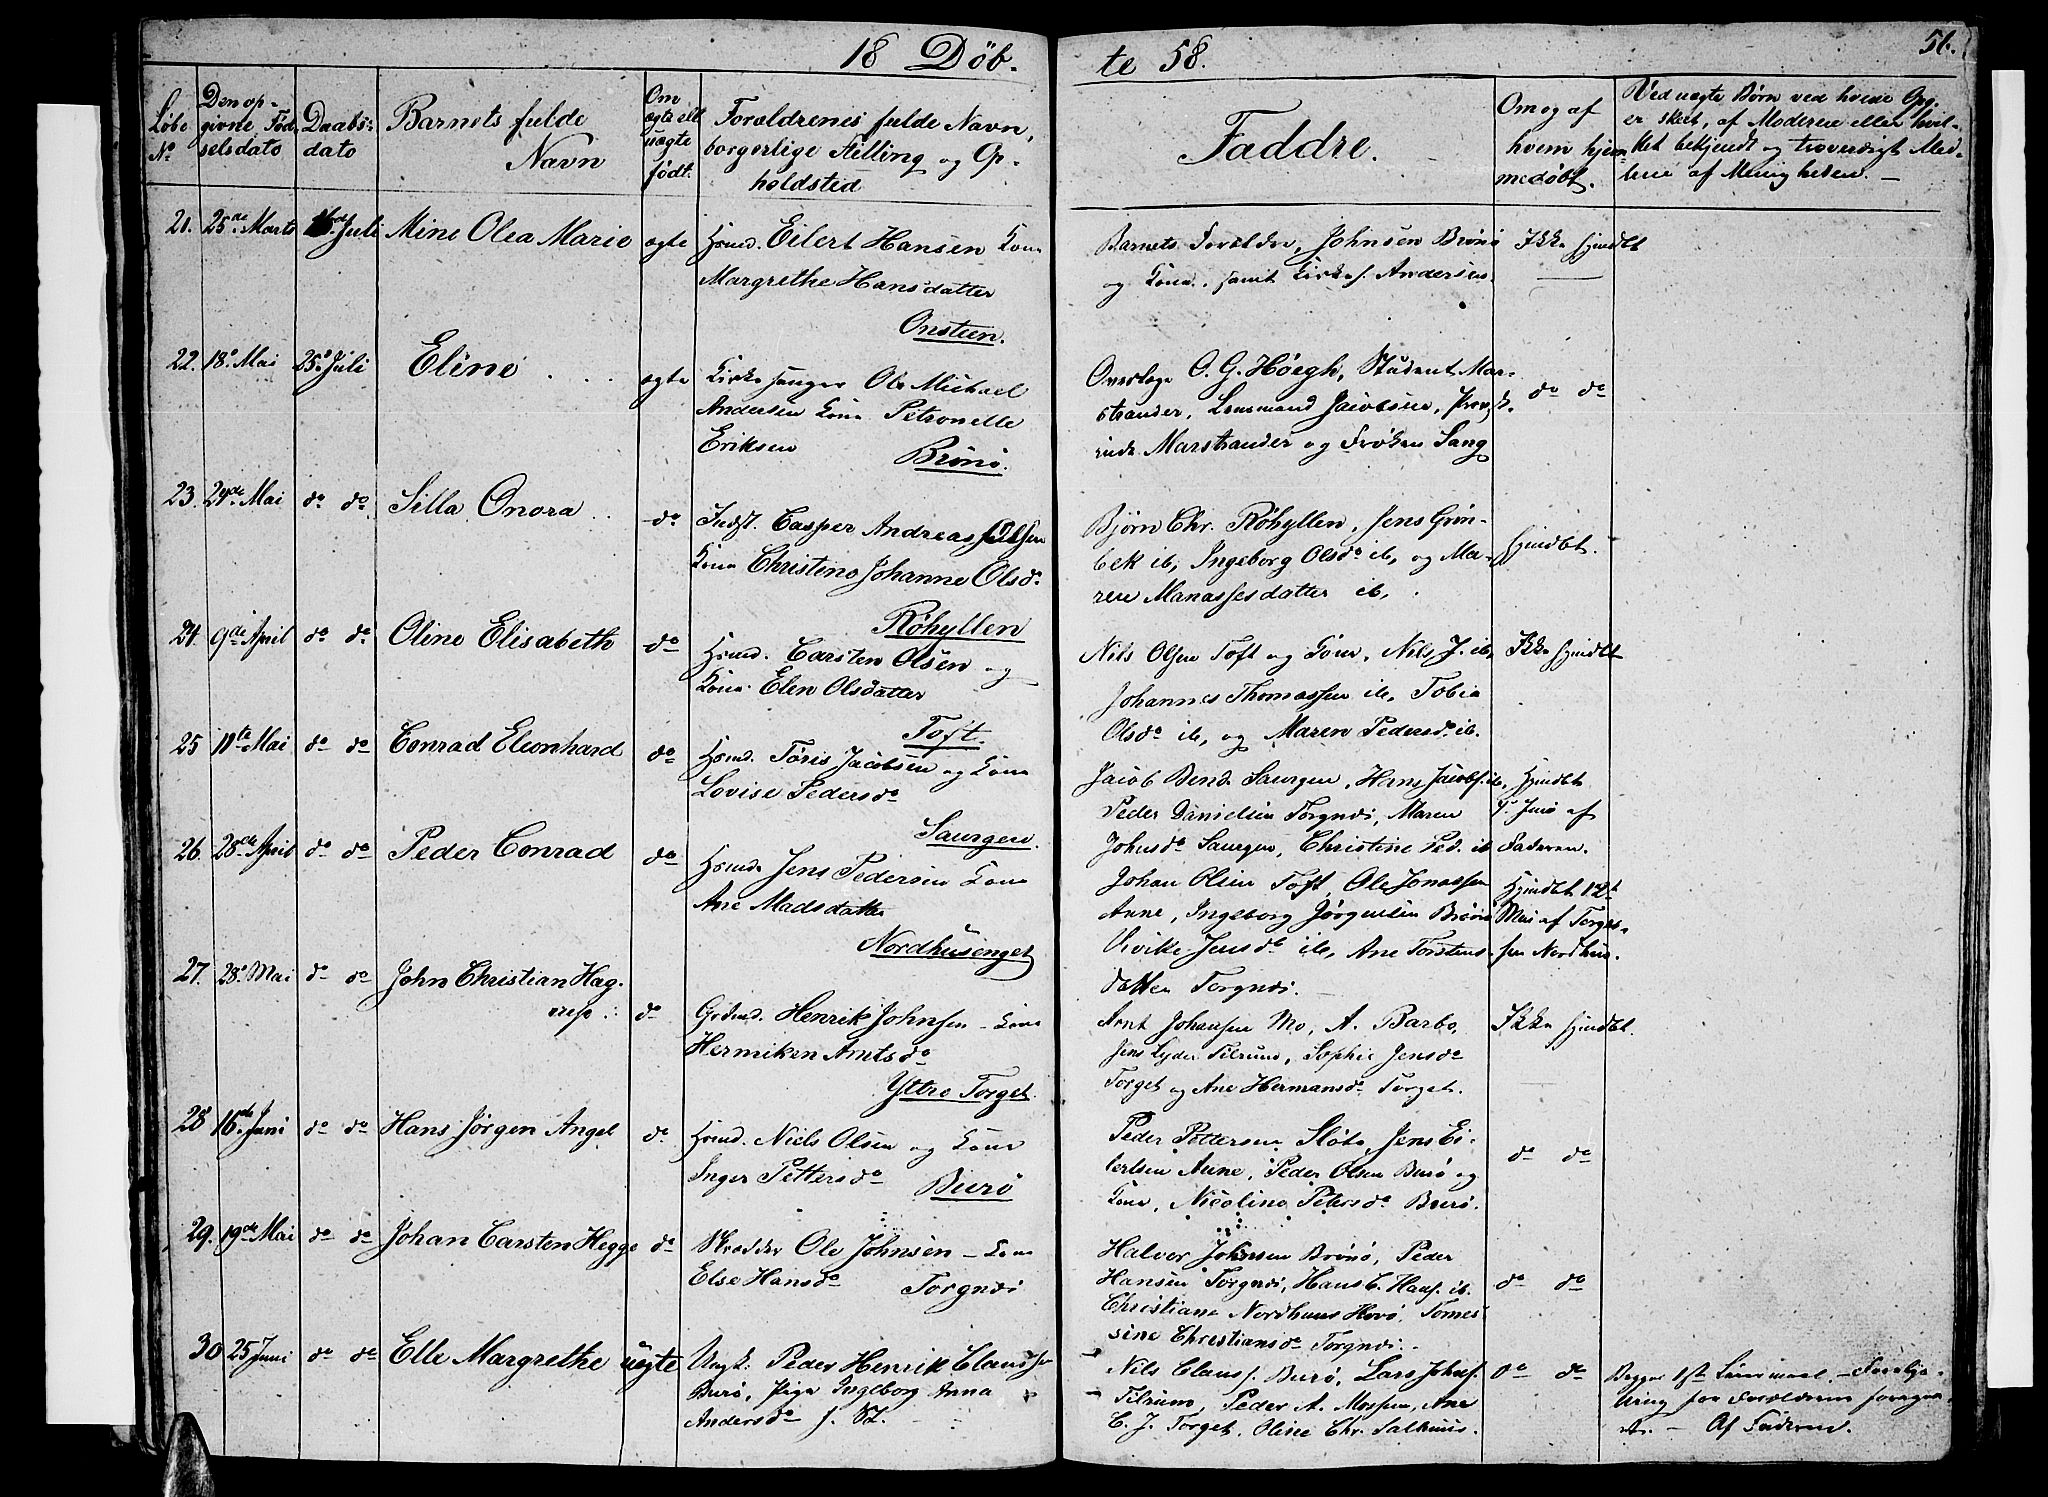 18 Døb-
te 58.
56.
Løbe No
Den op-
givne Fød-
selsdato
Daabs-
dato
Barnets fulde
Navn
Om
ægte ell
uægte
født.
Forældrenes fulde Navn,
borgerlige Stilling og Op-
holdsted
Faddre.
Om og af
hvem hjem-
medøbt.
Ved uægte Børn ved hvem Opg.
er skeet, af Moderen eller hvil-
ket bekjendt og troværdigt Med-
lem af Menigheden. —
21. 25de Marts Juli Mine Olea Marie ægte Hsmd. Eilert Hansen Kone
Margrethe Hansdatter
Onsteen.
Barnets Forældre, Johnsen Brønø
og Kone, samt Kirkes. Andersen.
Ikke hjmdbt
22. 18de Mai 25de Juli Eline ægte Kirkesanger Ole Michael
Andersen Kone Petronelle
Eriksen Brønø.
Overlæge O. G. Høegh, Student Mar-
strander, Lensmand Jacobsen, Provst-
inde Marstrander og Frøken Sang
do do
23. 24de Mai do do Silla Onora do Indst. Casper Andreas
Kone Christine Johanne Olsd.
Røhyllen
Bjørn Chr. Røhyllen, Jens Grøn-
bek ib, Ingeborg Olsda ib, og Ma-
ren Manassesdatter ib,
hjmdbt.
24. 9de April do do Oline Elisabeth do Hsmd. Carsten Olsen og
Kone Elen Olsdatter
Toft.
Nils Olsen Toft og Kone, Nils J. ib,
Johannes Thomassen ib, Tobia
Olsda ib, og Maren Pedersd. ib.
Ikke hjmdbt
25 11te Mai do do Conrad Eleonhard do Hsmd. Tøris Jacobsen og Kone
Lovise Pedersda
Saurgen.
Jacob Bend. Saurgen, Hans Jacobs. ib,
Peder Danielsen Torgnæs, Maren
Johnsda Saurgen, Christine Ped. ib
Hjmdbt
af
Faderen.
26. 28de April do do Peder Conrad do Hsmd. Jens Pedersen Kone
Ane Madsdatter
Nordhusenget
Johan Olsen Toft, Ole Jonassen
Anne, Ingeborg Jørgensen Brønø
Vivike Jensda ib, Ane Torstens-
datter Torgnæs. —
Hjmdbt
Mai af Torges-
sen Nordhus.
27. 28de Mai do do John Christian Hag-
do Grdmd. Henrik Johnsen — Kone
Henriken Arntsda
Yttre Torget.
Arnt Johansen Mo, A. Barbo,
Jens Lyder Tilrum, Sophie Jensda
Torget og Ane Hermansda Torget.
Ikke hjmdbt.
28 16de Juni do do Hans Jørgen Angel do Hsmd. Niels Olsen og Kone
Inger Pettersda Burø
Peder Pettersen Sløbe, Jens Ei-
lertsen Aune, Peder Olsen Burø og
Kone, Nicolina Petersda Burø.
do do
29. 19de Mai do do Johan Carsten Hegge do Skrædder Ole Johnsen — Kone
Else Hansda Torgnæs
Halvor Johnsen Brønø, Peder
Hansen Torgnæs, Hans C. Hans. ib.
Christiane Nordhuus Hovø, Tomes-
sine Christiansda Torgnæs.
do do
30 25 Juni do do Elle Margrethe uægte Ungk: Peder Henrik Claussen
Burø, Pige Ingeborg Anna
Andersda
Nils Clauss. Burø, Lars Johns.
Tilrum, Peder A. Mossen, Ane
C. J. Torget, Oline Chr. Salhuus.
do do
Begges 1ste Leiermaal. —
for Forældrene
— Af Faderen.